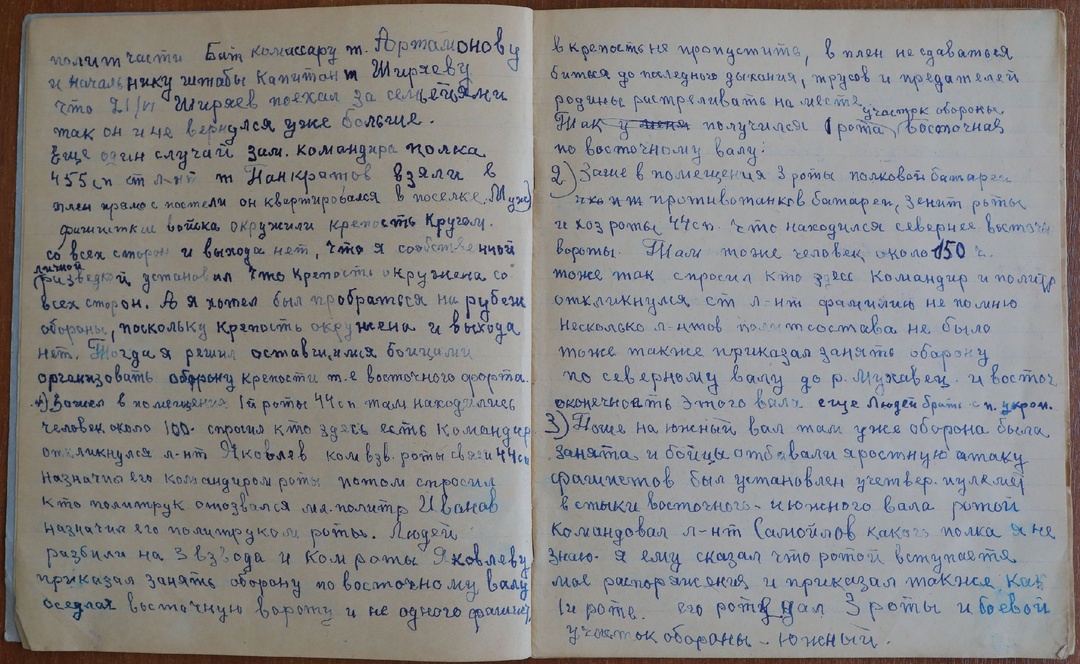 политчасти Бат комиссару т. Артамонову
и начальнику штабы Капитан т Ширяеву
что 21/VI Ширяев поехал за семьями
так он и не вернулся уже больше.
Еще один случай зам. командира полка
455сп ст л-нт т Панкратов взяли в
плен прямо с постели он квартировался в поселке
фашисткие войска окружили крепость кругом.
со всех сторон и выхода нет, что я собственной
личной
разведкой установил что крепость окружена со
всех сторон. А я хотел был пробраться на рубеж
обороны, поскольку крепость окружена и выхода
нет. Тогда я решил оставшимися бойцами
организовать оборону крепости т.е восточного форта.
1) Зашел в помещения 1й роты 44сп там находились
человек около 100. спросил кто здесь есть Командир
откликнулся л-нт Яковлев ком взв. роты связи 44сп
назначил его командиром роты потом спросил
кто политрук отозвался мл. политр Иванов
назначил его политруком роты. Людей
разбили на 3 взвода и Комроты Яковлеву
приказал занять оборону по восточному валу
оседлая восточную вороту и не одного фашист
в крепость не пропустить, в плен не сдаваться
биться до последнего дыхания, трусов и предателей
родины растреливать на месте
участок обороны
Так у меня получился 1 рота восточная
по восточному валу:
2) Заше в помещения 3 роты полковой батареи
противотанков батареи, зенит роты
и хоз роты 44сп. что находился севернее восточн
вороты. Там тоже человек около 150 ч.
тоже так спросил кто здесс Командир и политр
откликнулся ст л-нт фамилию не помню
несколько л-нтов политсостава не было
тоже также приказал занять оборону
по северному валу до р. Мухавец и восточ
оконечность этого вала еще людей брать с п. укрот.
3) Поше на южный вал там уже оборона была
занята и бойцы отбивали яростную атаку
фашистов был установлен учетвер. пулемет
в стыки восточного - южного вала ротой
Командовал л-нт Самойлов какого полка я не
знаю. Я ему сказал что ротой вступаете
мое распоряжения и приказал также как
1й роте. его роту дал 3 роты и боевой
участок обороны - южный.